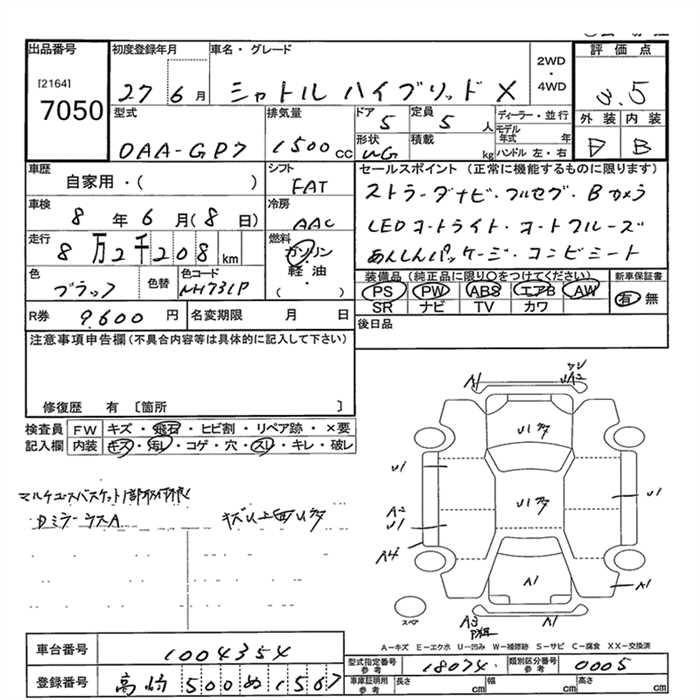 出品番号
[2164]
7050
初度登録年月
27 6月
車名・グレード
シャトル ハイブリッド X
2WD
・
4WD
評価点
3.5
外装 内装
D B
型式
DAA-GP7
排気量
1500cc
ドア
5
定員
5人
ディーラー・並行
モデル年式 年
形状
WG
積載
kg
ハンドル 左・右
車歴
自家用・( )
シフト
FAT
セールスポイント (正常に機能するものに限ります)
ストラーダナビ・フルセグ・Bカメラ
LEDオートライト・オートクルーズ
あんしんパッケージ・コンビシート
車検
8年6月(8日)
冷房
AAC
走行
8万2千208km
燃料
ガソリン
・
軽油
( )
色
ブラック
色替
色コード
NH731P
装備品(純正品に限り○をつけてください)
PS PW ABS エアB AW
SR ナビ TV カワ
新車保証書
有 無
R券 9,600円
名変期限 月 日
後日品
注意事項申告欄(不具合内容等は具体的に記入して下さい)
修復歴 有 〔箇所 〕
検査員記入欄
FW キズ・飛石・ヒビ割・リペア跡・×要
内装 キズ・汚レ・コゲ・穴・スレ・キレ・破レ
Dミラーウラス
A1
UA2
U1
U1
U1
A2
U1
A4
A1
A1
A3
A1
スペア
A-キズ E-エクボ U-凹み W-補修跡 S-サビ C-腐食 XX-交換済
車台番号
1004354
登録番号
高崎 500 ぬ 1567
型式指定番号
参考
18074
類別区分番号
参考
0005
車庫証明用
参考
長さ cm
幅 cm
高さ cm